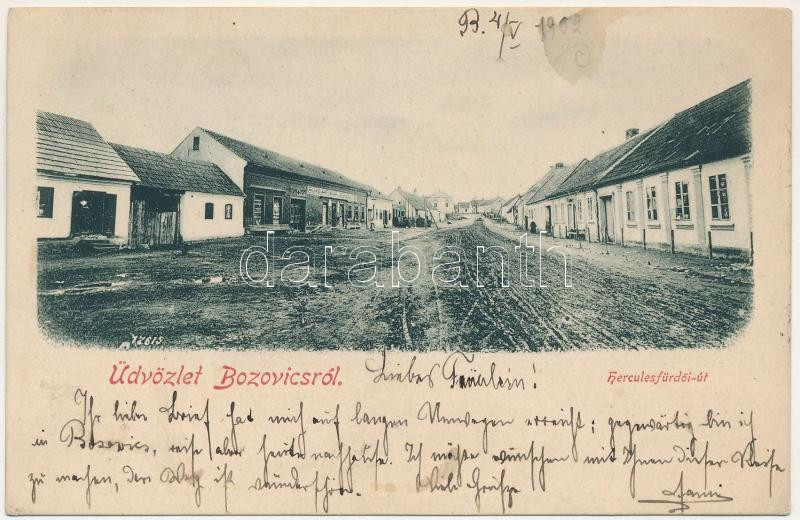 B. 4/V 1902
darabanth
12615
Üdvözlet Bozovicsról.
Liebes Fräulein!
Herculesfürdői-út
Ihr lieber Brief hat mich auf langen Umwegen erreicht; gegenwärtig bin ich
in Bozovics, reise aber heute nachhause. Ich möchte wünschen mit Ihnen dieser Reise
zu machen, der Weg ist wunderschön. Viele Grüsse